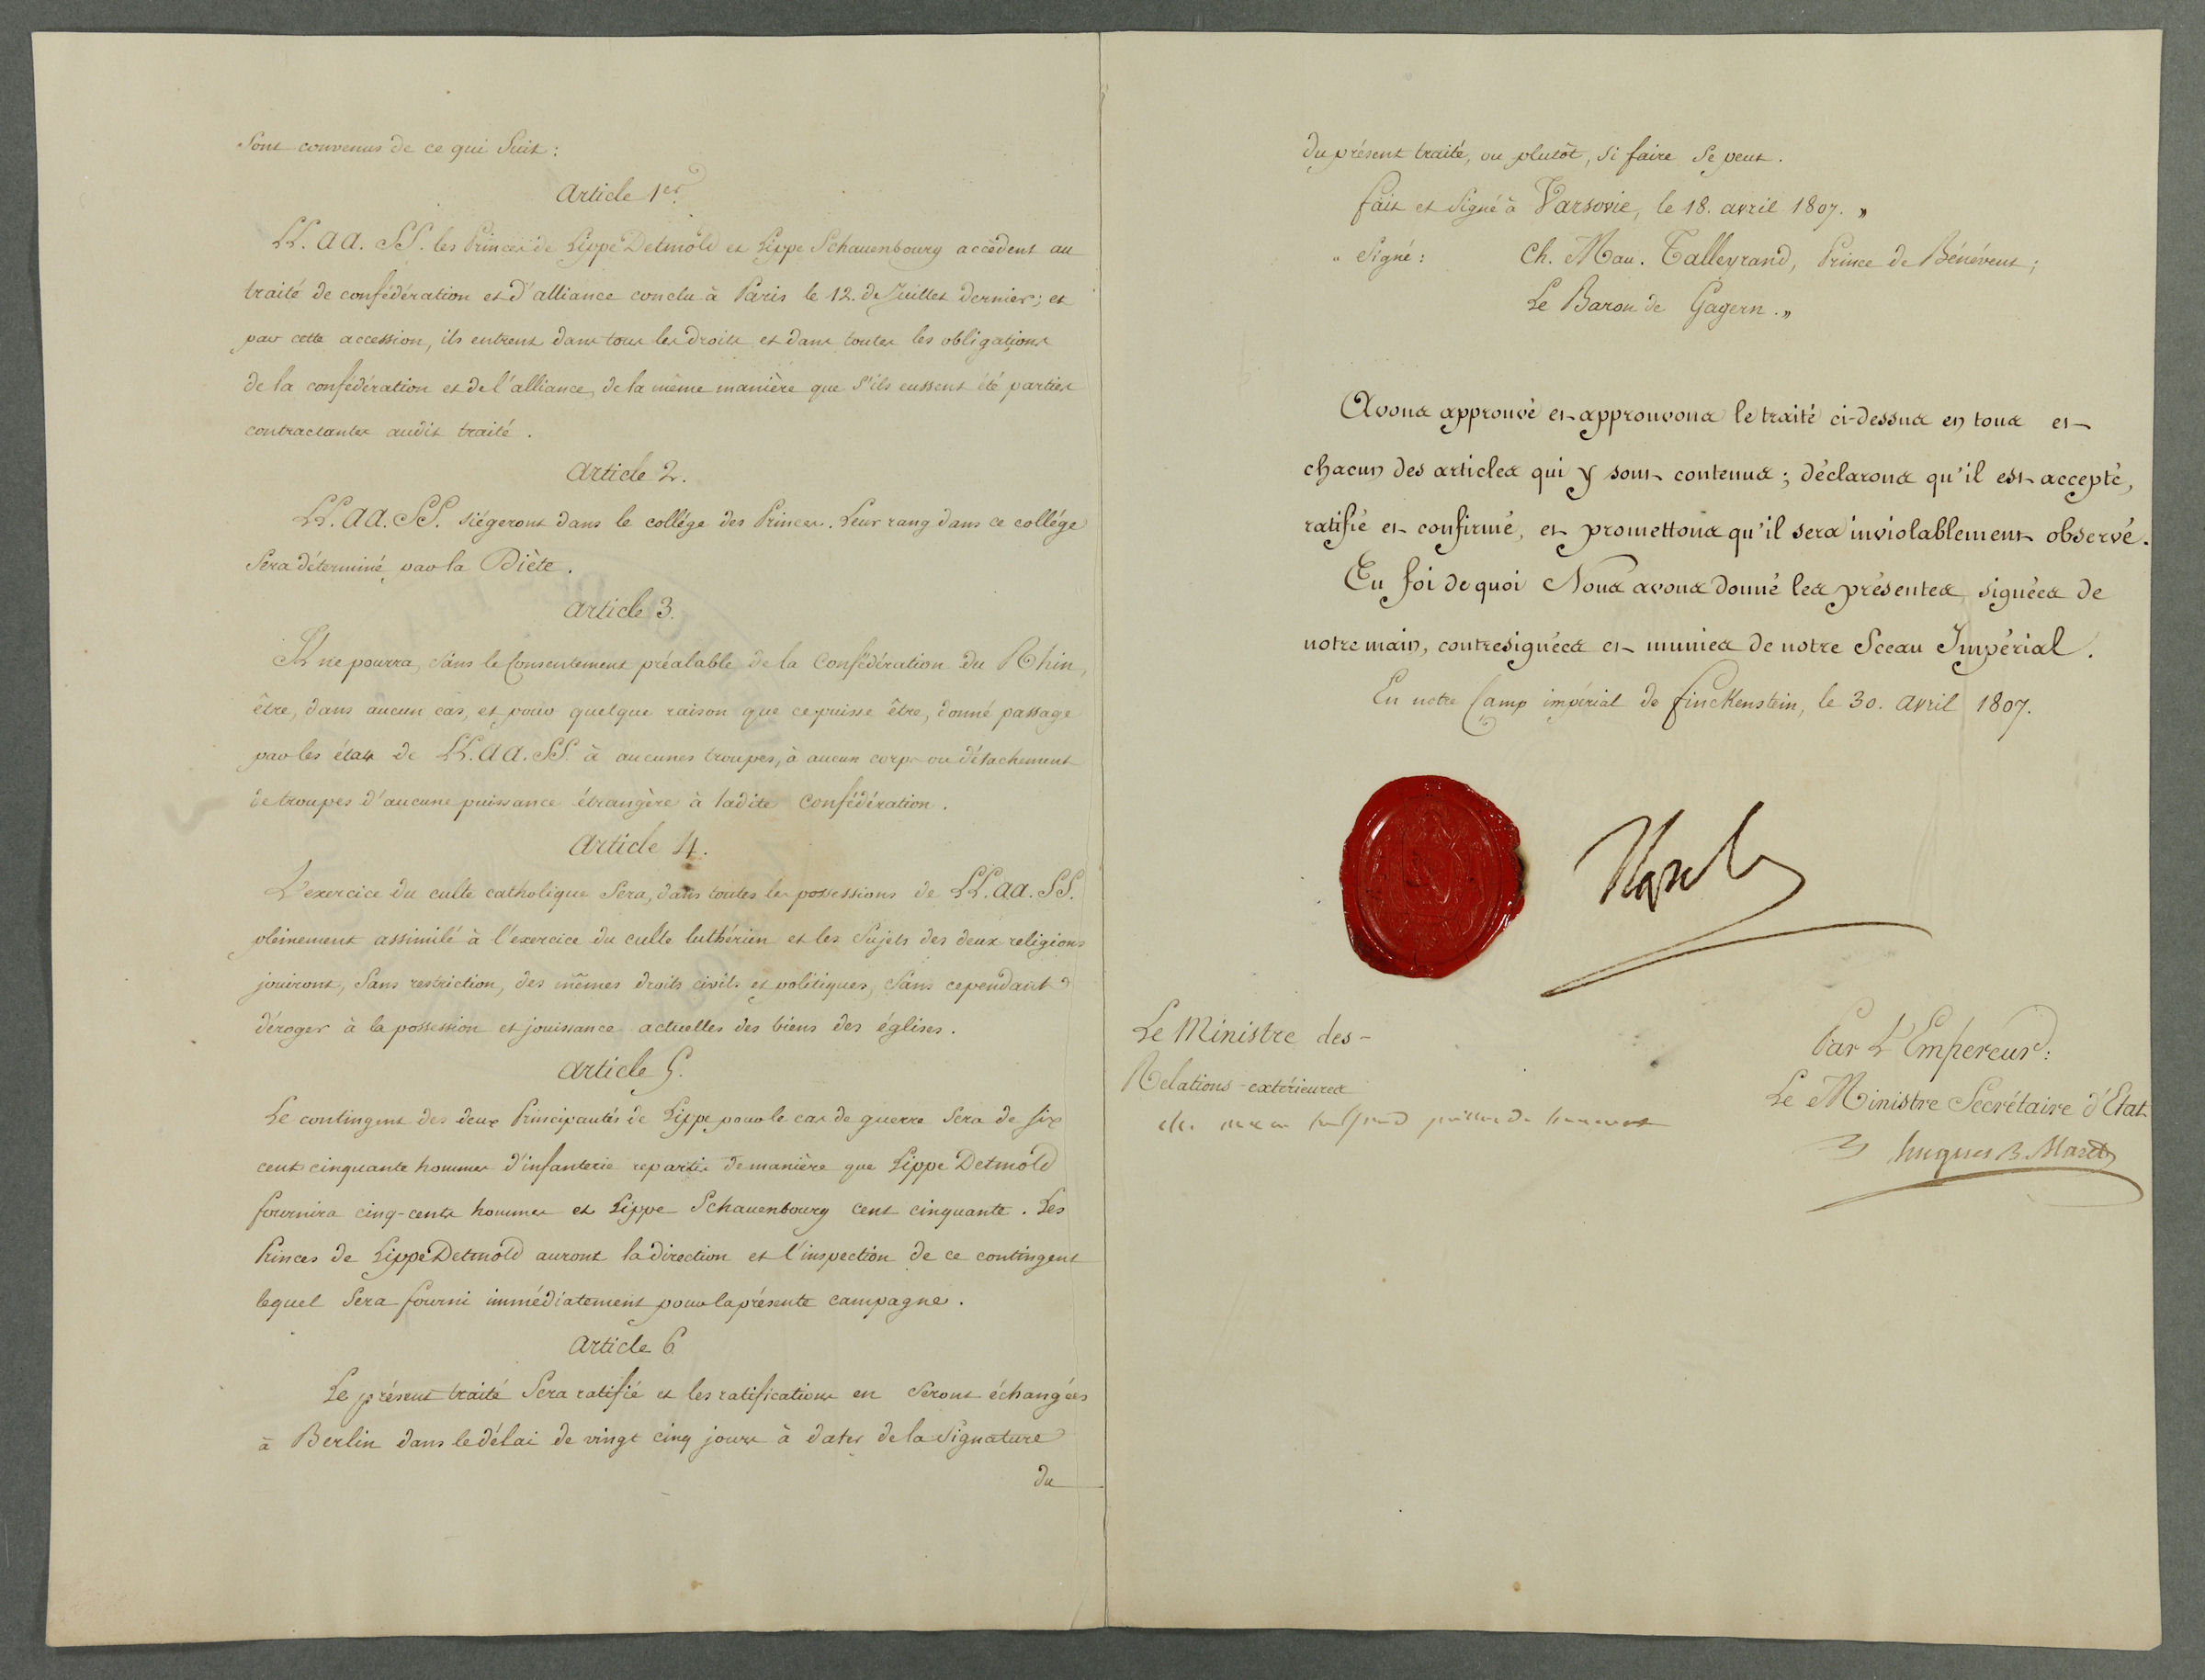 Sont convenus de ce qui Suit :
Article 1er.
LL. AA. SS. les Princes de Lippe Detmold et Lippe Schauenbourg accèdent au
traité de confédération et d'alliance conclu à Paris le 12. de Juillet dernier ; et
par cette accession, ils entrent dans tous les droits et dans toutes les obligations
de la confédération et de l'alliance, de la même manière que s'ils eussent été parties
contractantes audit traité.
Article 2.
LL. AA. SS. siégeront dans le collége des Princes. Leur rang dans ce collége
Sera déterminé par la Diète.
Article 3.
Il ne pourra, Sans le Consentement préalable de la Confédération du Rhin,
être, dans aucun cas, et pour quelque raison que ce puisse être, donné passage
par les états de LL. AA. SS. à aucunes troupes, à aucun corps ou détachement
de troupes d'aucune puissance étrangère à ladite Confédération.
Article 4.
L'exercice du culte catholique Sera, dans toutes les possessions de LL. AA. SS.
pleinement assimilé à l'exercice du culte luthérien et les Sujets des deux religions
jouiront, Sans restriction, des mêmes droits civils et politiques, Sans cependant
déroger à la possession et jouissance actuelles des biens des églises.
Article 5.
Le contingent des deux Principautés de Lippe pour le cas de guerre Sera de six
cents cinquante hommes d'infanterie repartis de manière que Lippe Detmold
fournira cinq-cents hommes et Lippe Schauenbourg cent cinquante. Les
Princes de Lippe Detmold auront la direction et l'inspection de ce contingent
lequel Sera fourni immédiatement pour la présente campagne.
Article 6
Le présent traité Sera ratifié et les ratifications en Seront échangées
à Berlin dans le délai de vingt cinq jours à dater de la Signature
du
du présent traité, ou plutôt, si faire Se peut.
fait et Signé à Varsovie, le 18. avril 1807. »
« Signé : Ch. Mau. Talleyrand, Prince de Bénévent ;
Le Baron de Gagern. »
Avons approuvé et approuvons le traité ci-dessus en tous et
chacun des articles qui y sont contenus ; déclarons qu'il est accepté,
ratifié et confirmé, et promettons qu'il sera inviolablement observé.
En foi de quoi Nous avons donné les présentes signées de
notre main, contresignées et munies de notre Sceau Impérial.
En notre Camp impérial de finckenstein, le 30. avril 1807.
Napol
Le Ministre des
Relations-extérieures
Par L'Empereur :
Le Ministre Secrétaire d'Etat
hugues B. Maret